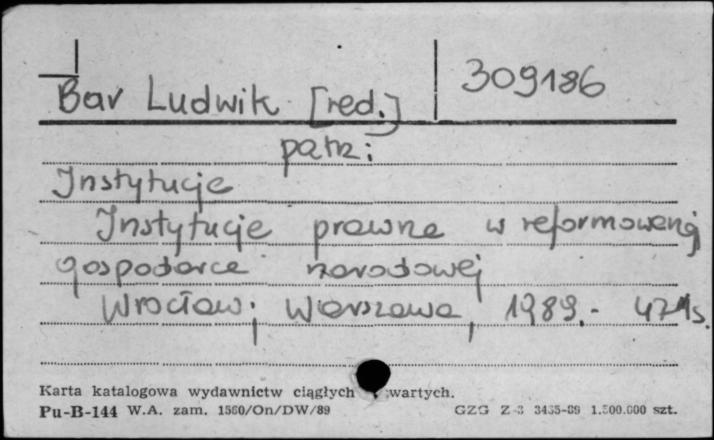 Bar Ludwik [red.] 309186
patrz:
Instytucje
Instytucje prawne w reformowanej
gospodarce narodowej
Wrocław; Warszawa, 1989.- 471s.
Karta katalogowa wydawnictw ciągłych wartych.
Pu-B-144 W.A. zam. 1560/On/DW/89 GZG Z-3 3435-89 1.500.000 szt.